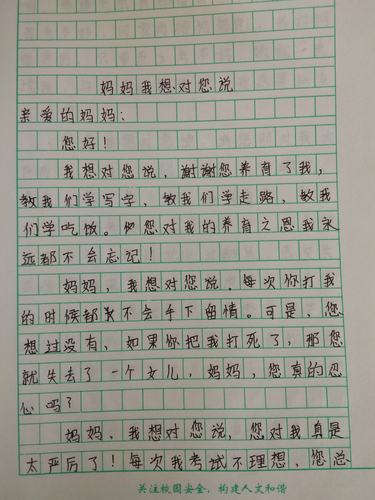 妈妈我想对您说
亲爱的妈妈：
您好！
我想对您说，谢谢您养育了我，
教我们学写字，教我们学走路，教我
们学吃饭。您对我的养育之恩我永
远都不会忘记！
妈妈，我想对您说，每次你打我
的时候都不会手下留情。可是，您
想过没有、如果你把我打死了，那您
就失去了一个女儿，妈妈，您真的忍
心吗？
妈妈，我想对您说，您对我真是
太严厉了！每次我考试不理想，您总
关注校园安全，构建人文和谐